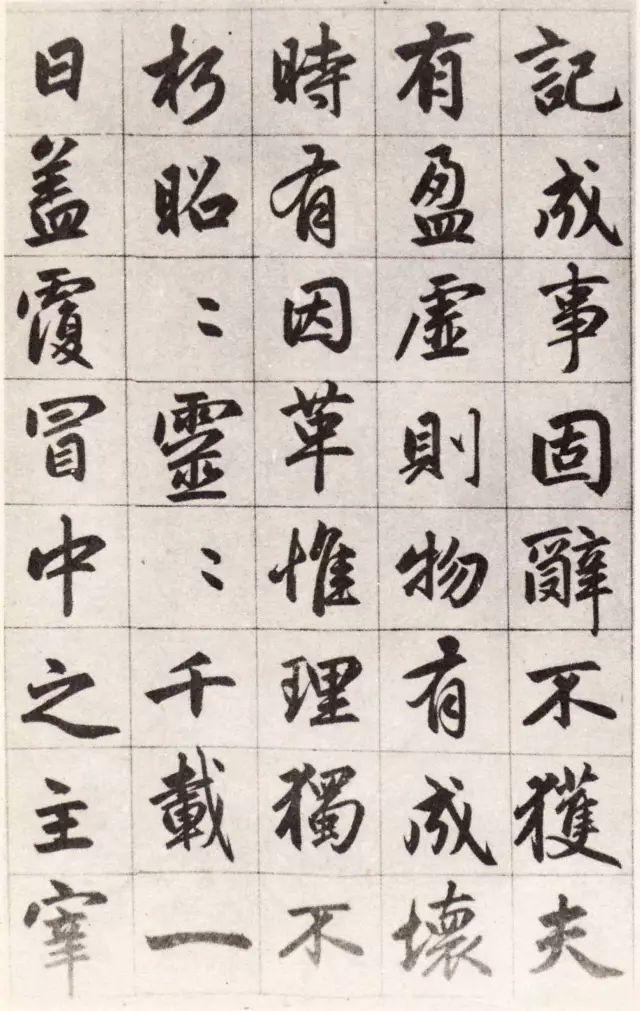 記成事固辭不獲夫
有盈虚則物有成壞
時有因革惟理獨不
朽昭〻靈〻千載一
日盖覆冒中之主宰